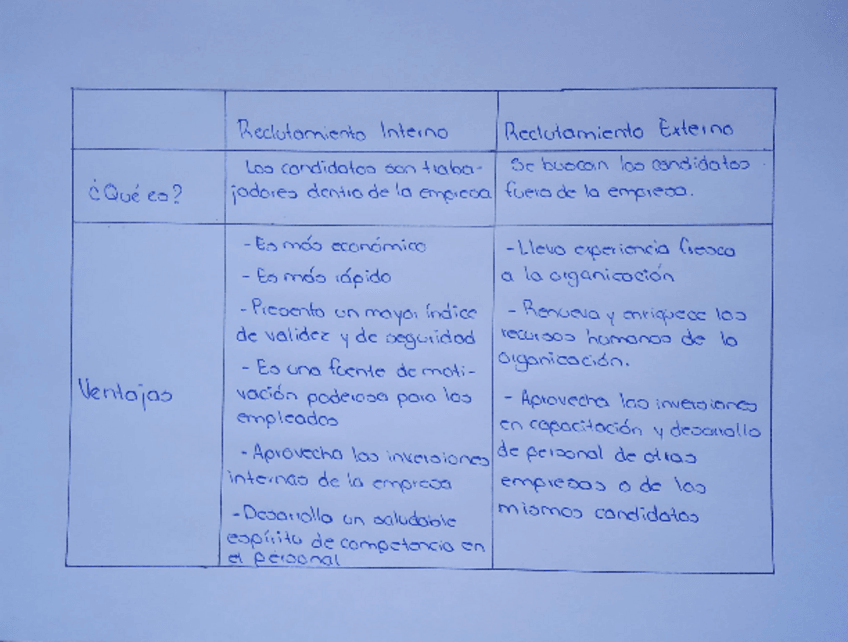 Reclutamiento Interno
Reclutamiento Externo
¿Qué es?
Los candidatos son traba-
jadores dentro de la empresa
Se buscan los candidatos
fuera de la empresa.
Ventajas
- Es más económico
- Es más rápido
- Presenta un mayor índice
de validez y de seguridad
- Es una fuente de moti-
vación poderosa para los
empleados
- Aprovecha las inversiones
internas de la empresa
- Desarrolla un saludable
espíritu de competencia en
el personal
- Lleva experiencia fresca
a la organización
- Renueva y enriquece los
recursos humanos de la
organización.
- Aprovecha las inversiones
en capacitación y desarrollo
de personal de otras
empresas o de los
mismos candidatos